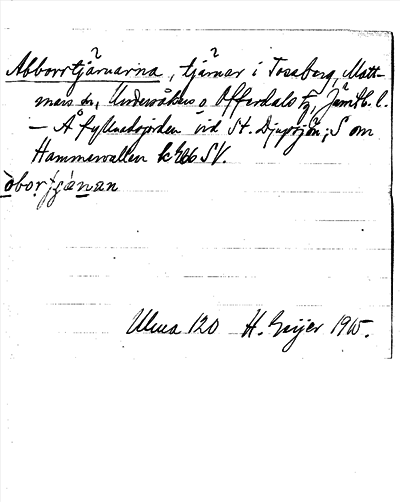 Abborrtjärnarna, tjärnar i Tossberg, Matt-
mars sn, Undersåkers o. Offerdals tg, Jämtl. l.
– Å fyllnadsjorden vid St. Djuptjän; S om
Hammarvallen k 466 SV.
òbo̩rtjánan
Ulma 120 H. Geijer 1915.